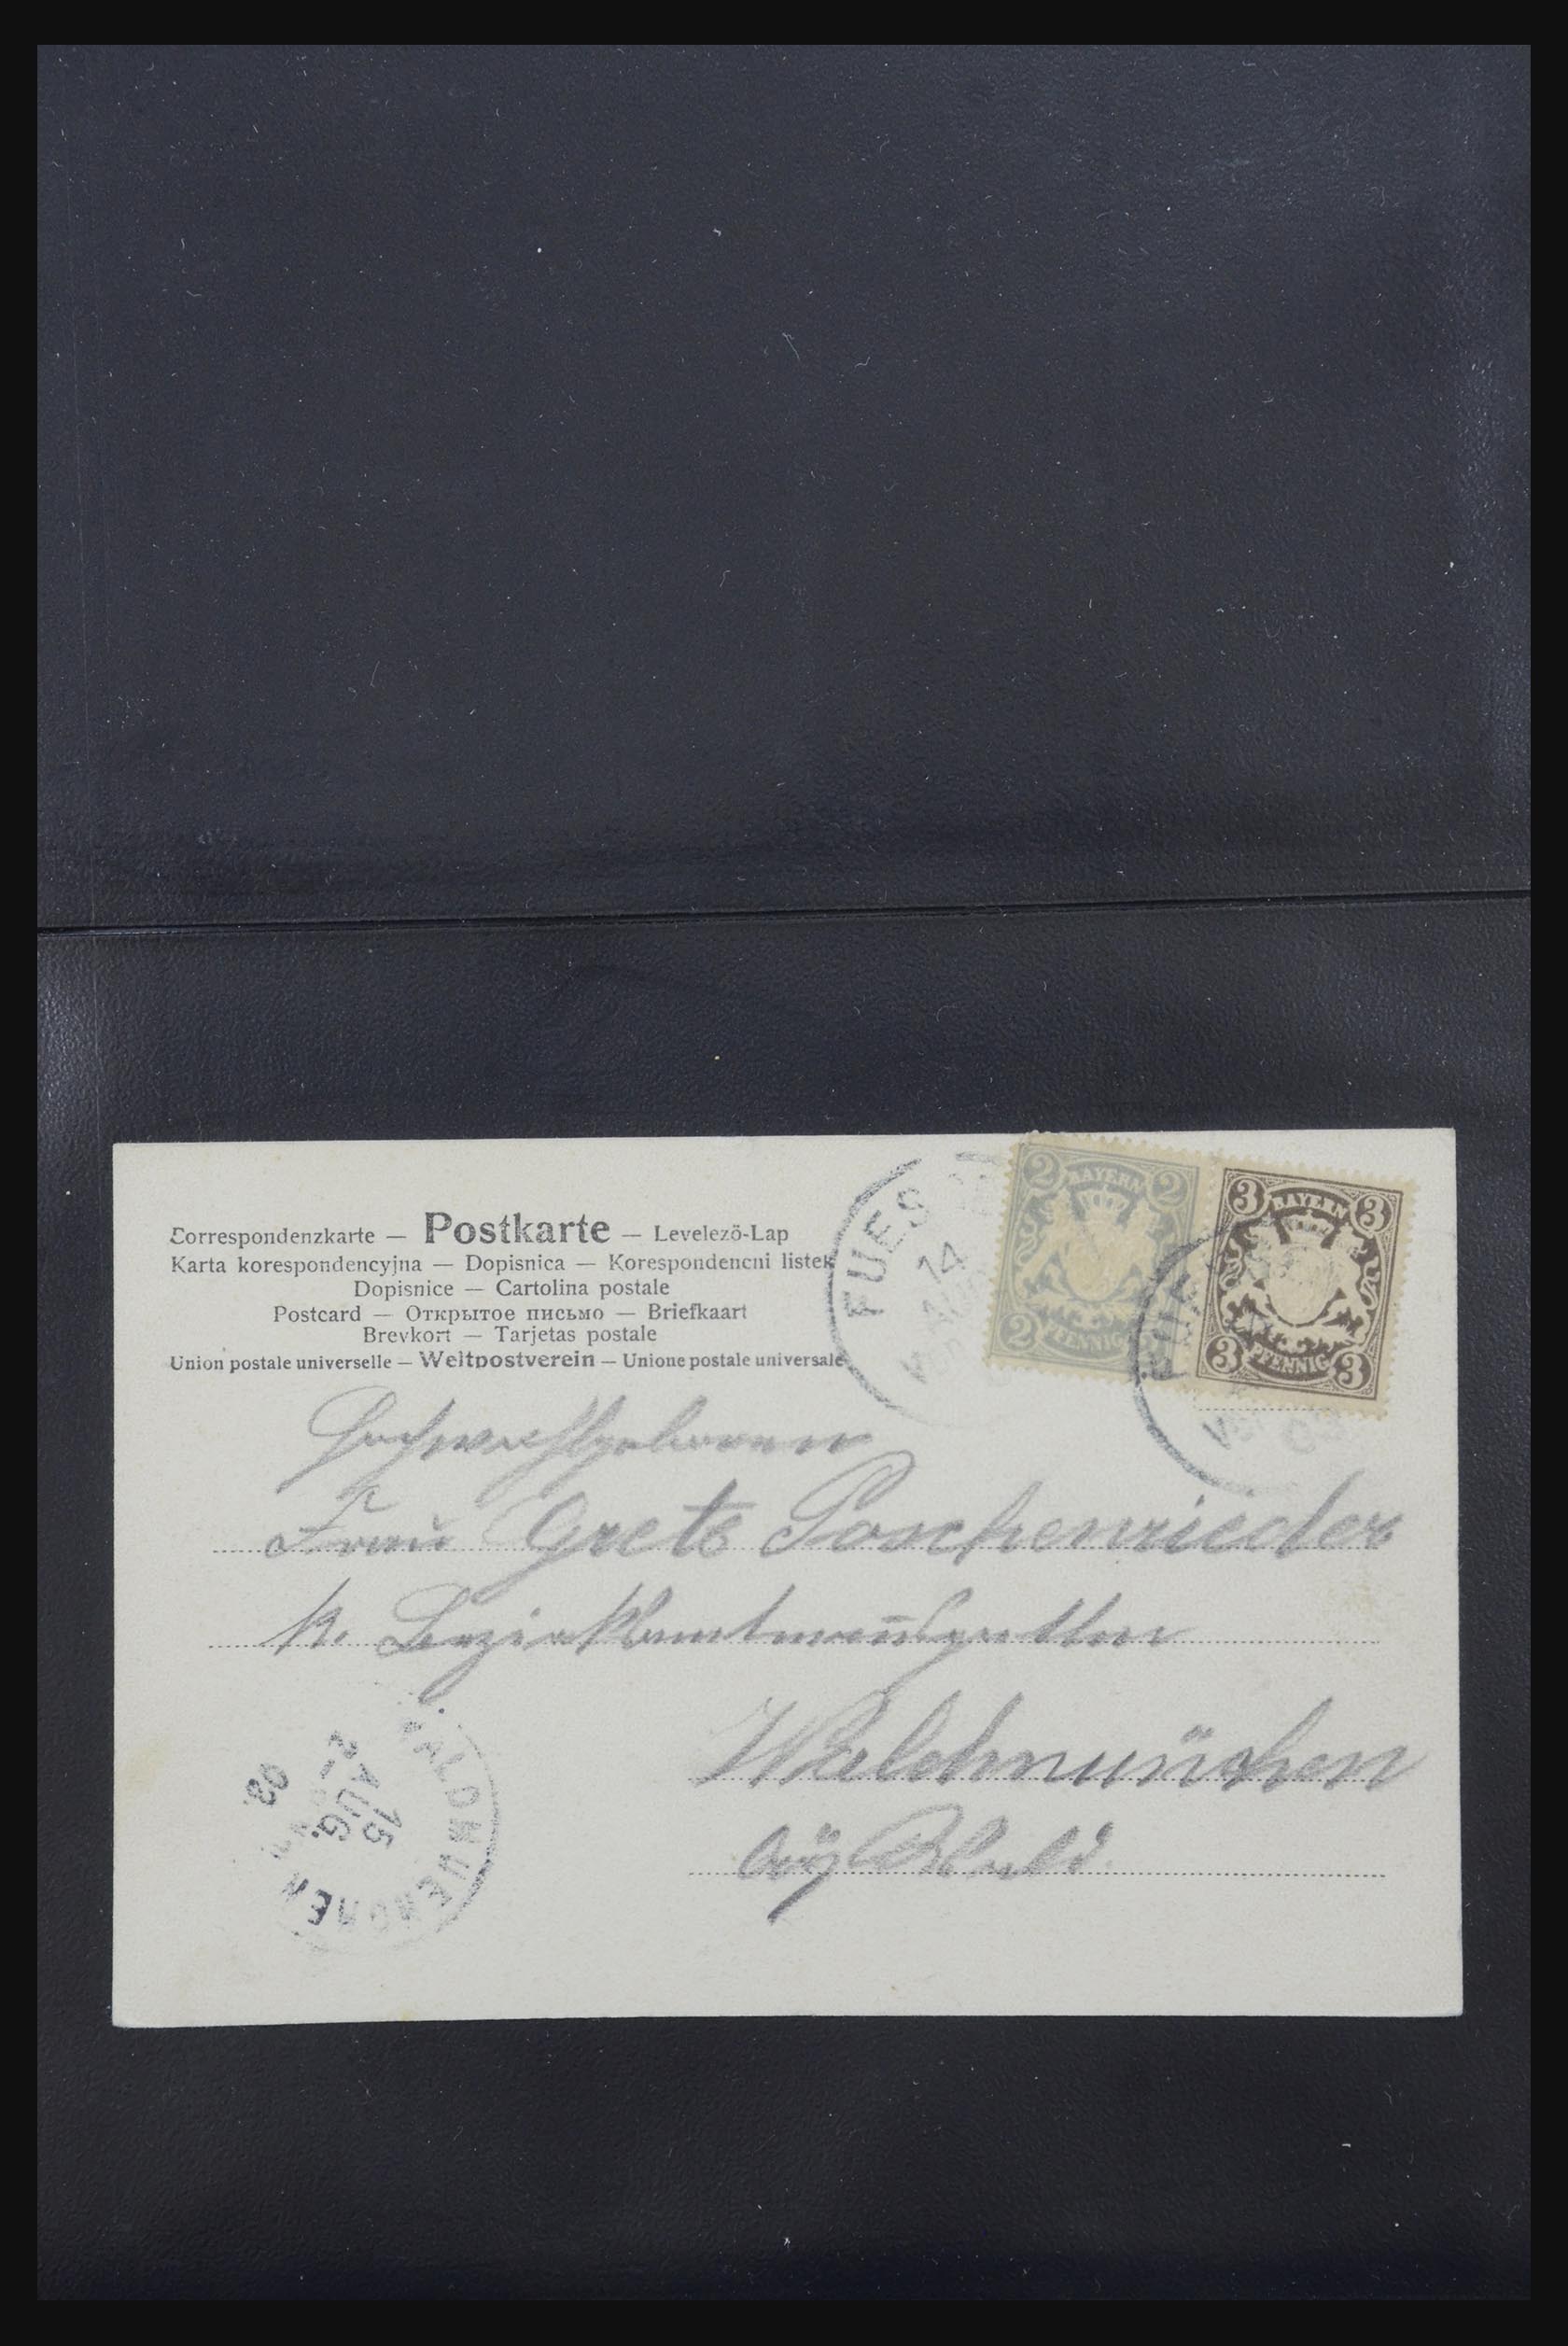 Correspondenzkarte — Postkarte — Levelezö-Lap
Karta korespondencyjna — Dopisnica — Korespondencni listek
Dopisnice — Cartolina postale
Postcard — Открытое письмо — Briefkaart
Brevkort — Tarjetas postale
Union postale universelle — Weltpostverein — Unione postale universale
FUES
14
2 BAYERN 2
2 PFENNIG
3 BAYERN 3
3 PFENNIG 3
Hochwohlgeboren
Frau Grete Poschenrieder
k. Bezirksamtmannsgattin
Waldmünchen
WALDMUENCHEN
15
AUG.
03